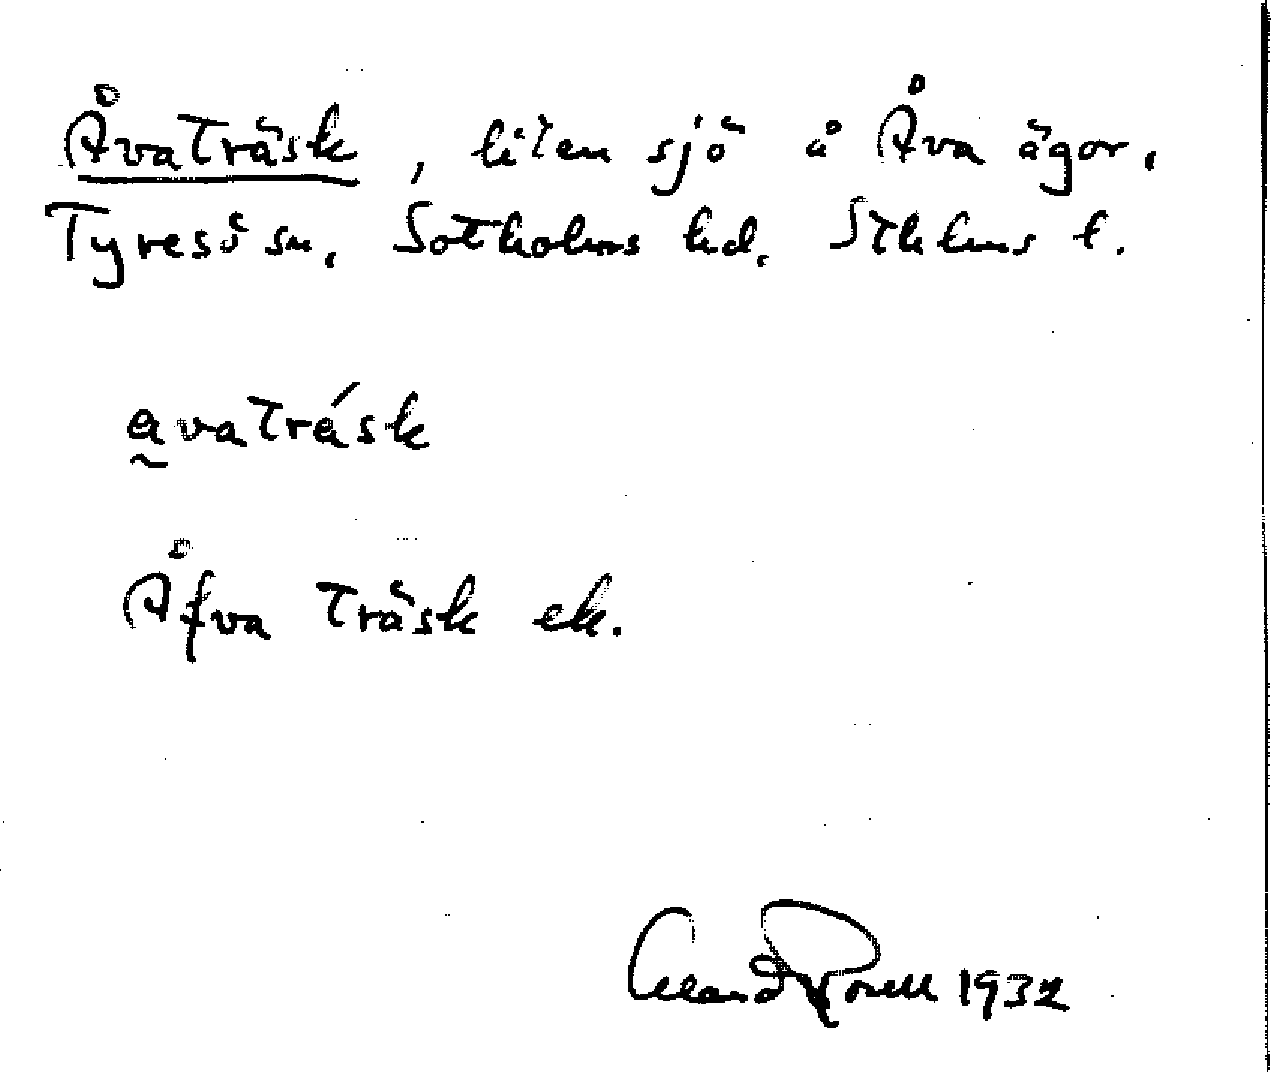 Åvaträsk, liten sjö å Åva ägor,
Tyresö sn, Sotholms hd, Sthlms l.
avatråsk
Åfva träsk ek.
1932